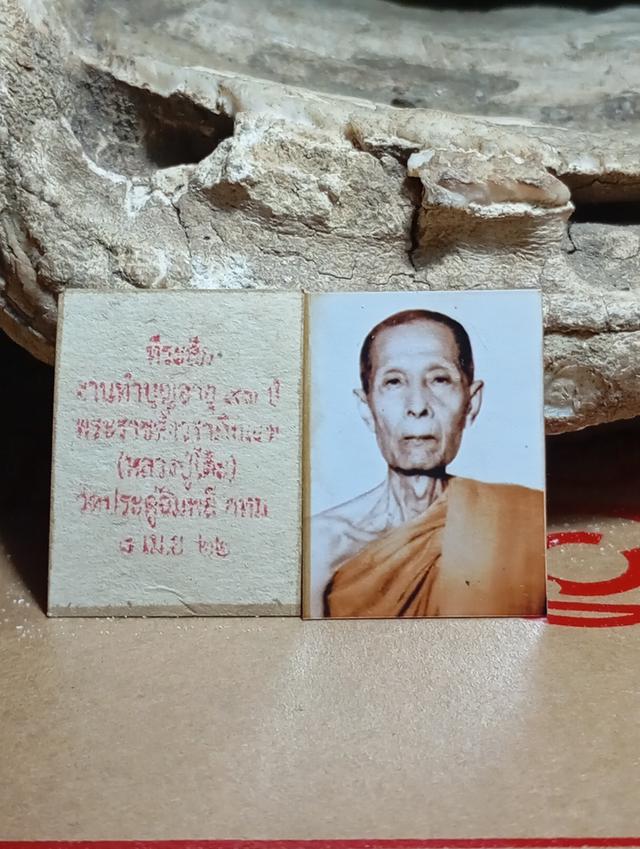 ที่ระลึก
งานทำบุญอายุ ๙๓ ปี
พระราชสังวราภิมณฑ์
(หลวงปู่โต๊ะ)
วัดประดู่ฉิมพลี กทม
๘ เม.ย ๒๒